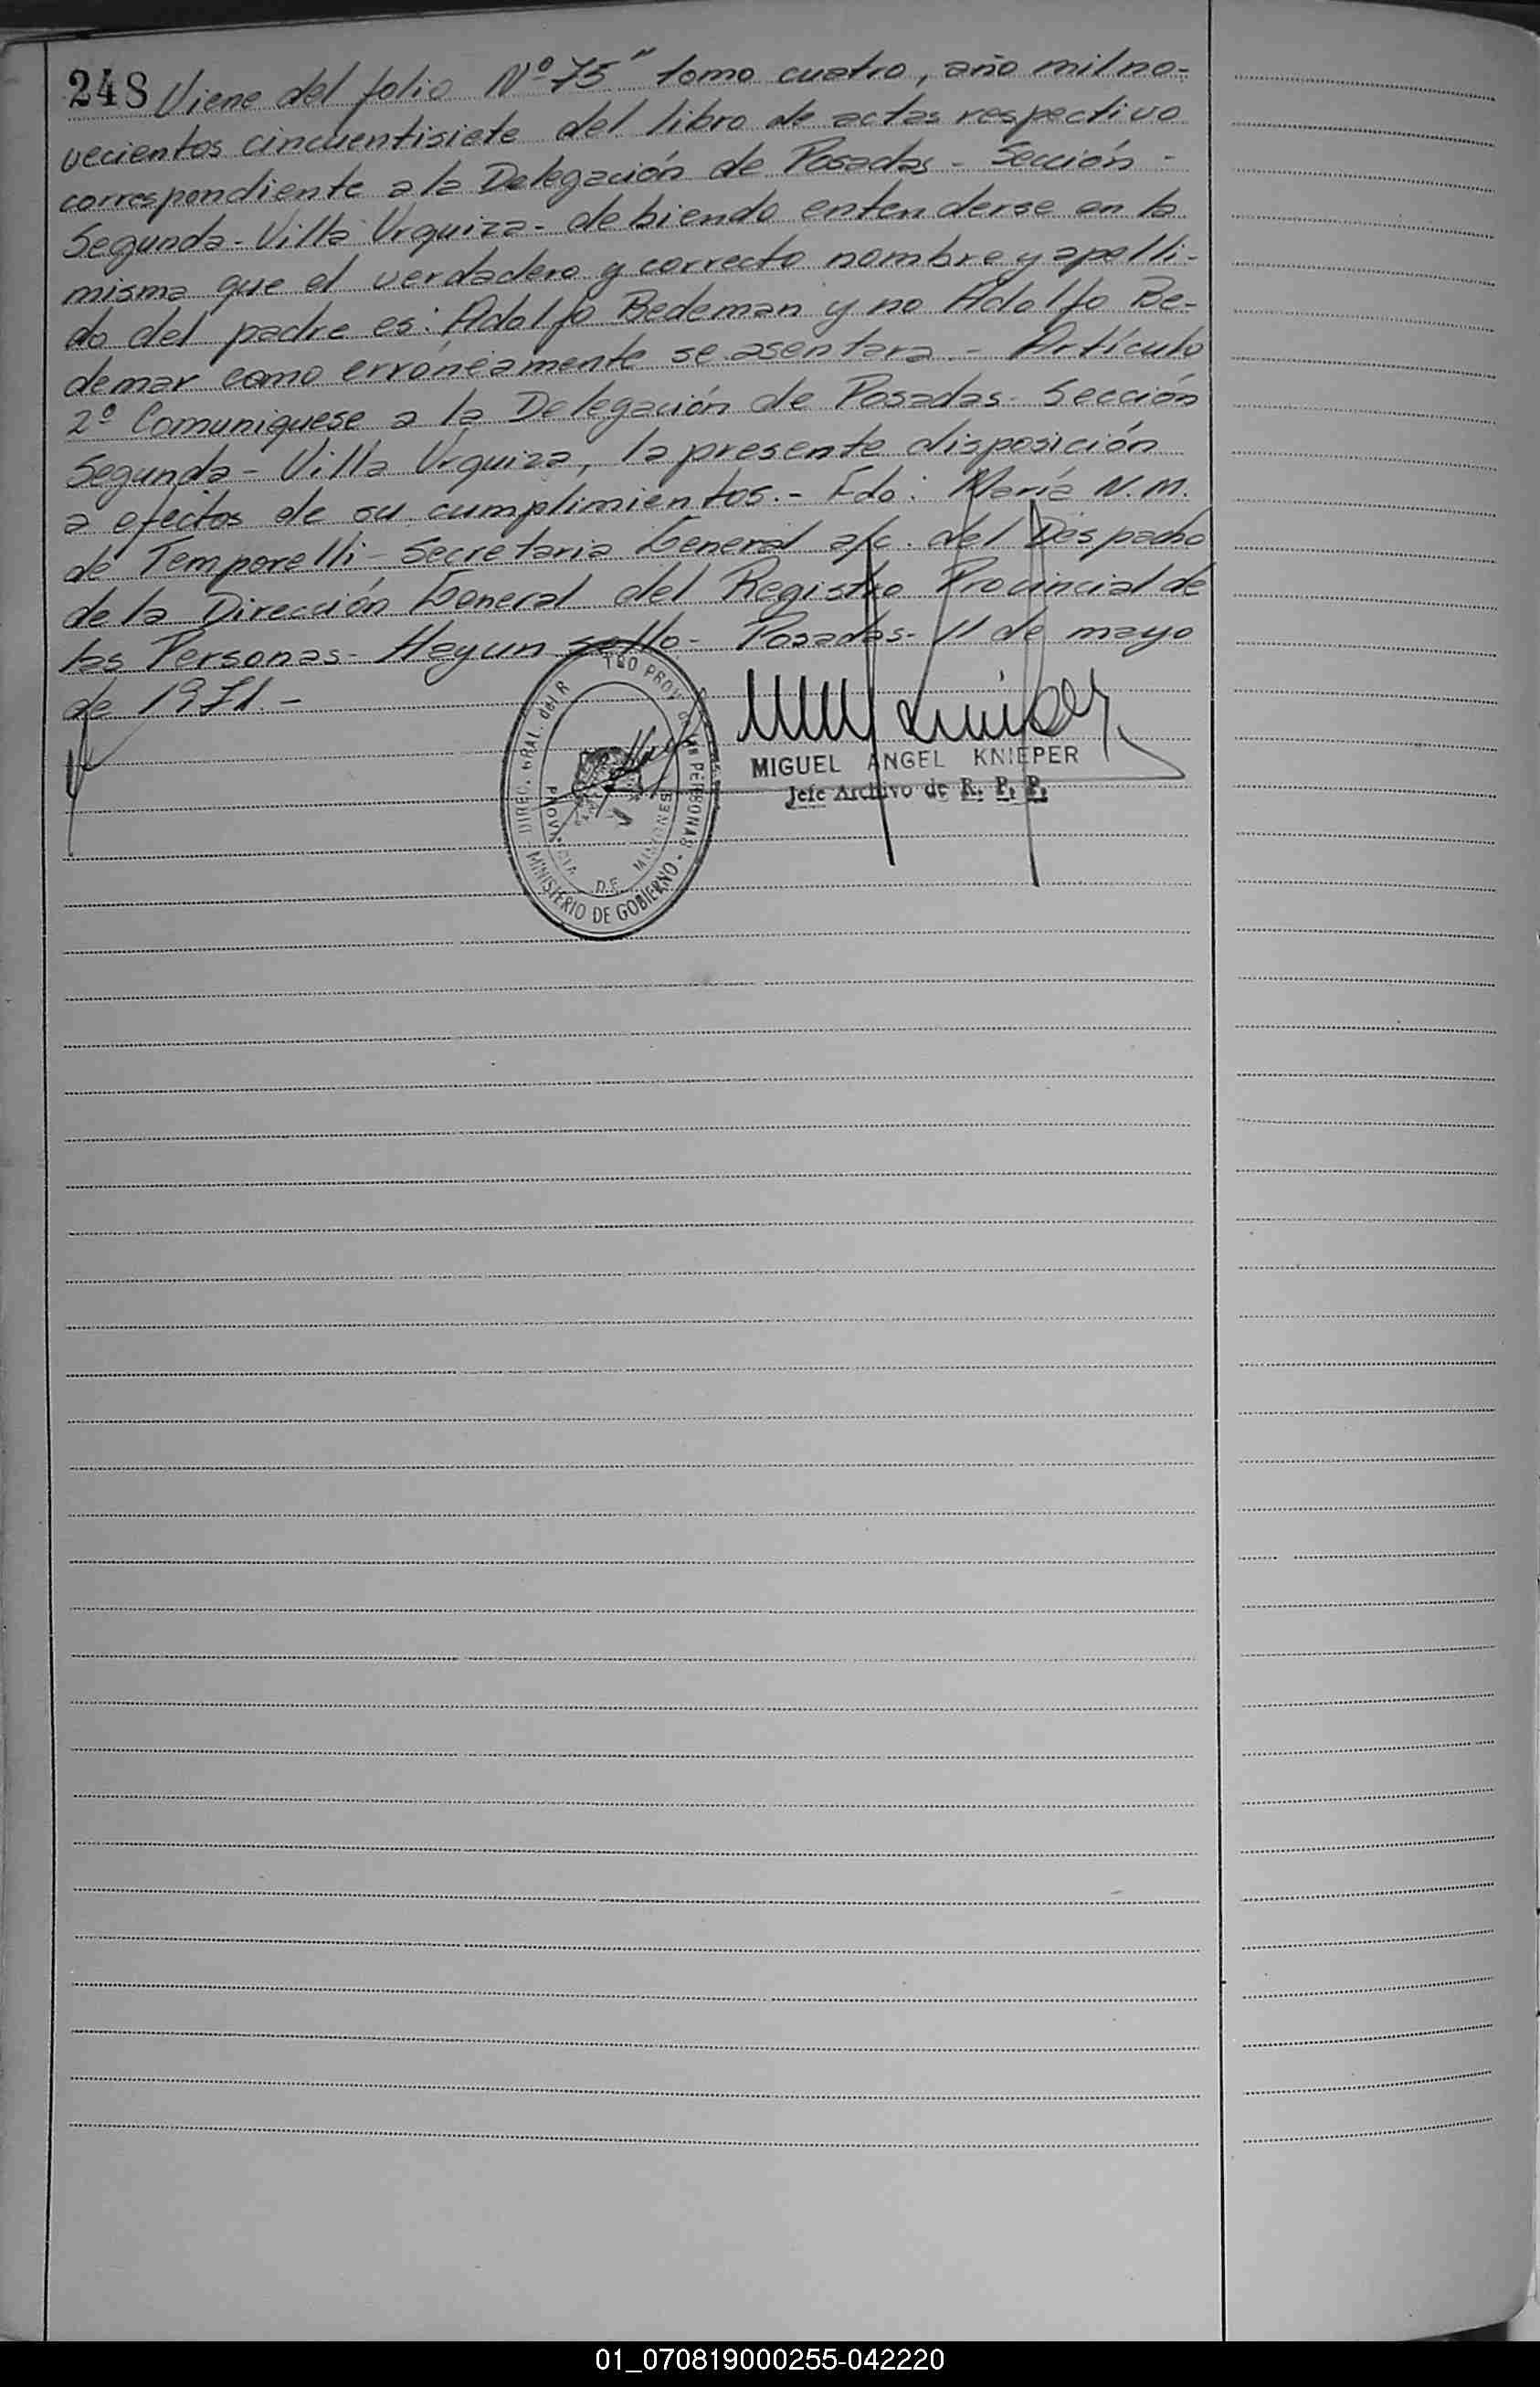 248 Viene del folio Nº 75" tomo cuatro, año milno-
vecientos cincuentisiete del libro de actas respectivo
correspondiente a la Delegación de Posadas - Sección -
Segunda - Villa Urquiza - debiendo entenderse en la
misma que el verdadero y correcto nombre y apelli-
do del padre es: Adolfo Bedeman y no Adolfo Be-
demar como erróneamente se asentara. - Artículo
2º Comuniquese a la Delegación de Posadas - Sección
Segunda - Villa Urquiza, la presente disposición
a efectos de su cumplimientos. - Fdo: María N. M.
de Temporelli - Secretaria General a/c. del Despacho
de la Dirección General del Registro Provincial de
las Personas - Hayun sello - Posadas - 11 de mayo
de 1971. -
DIREC. GRAL. del R TRO PROV. PERSONAS - MINISTERIO DE GOBIERNO -
PROVINCIA DE MISIONES
MIGUEL ANGEL KNIEPER
Jefe Archivo de R. P. P.
01_070819000255-042220